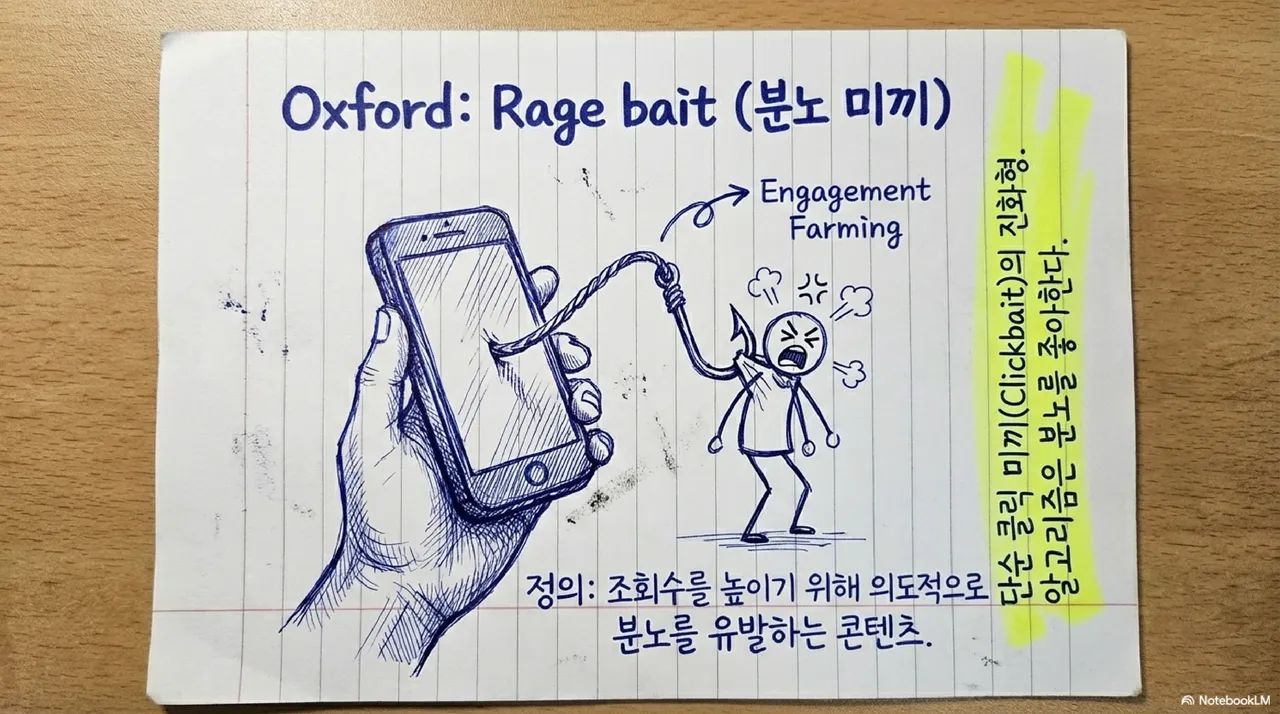 Oxford: Rage bait (분노 미끼)
Engagement
Farming
정의: 조회수를 높이기 위해 의도적으로
분노를 유발하는 콘텐츠.
단순 클릭 미끼(Clickbait)의 진화형.
알고리즘은 분노를 좋아한다.
NotebookLM